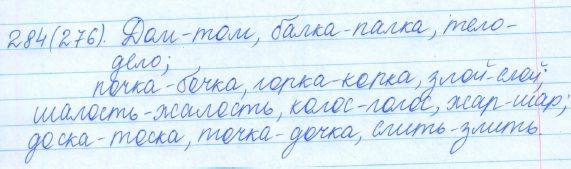 284(276). Дом-том, балка-палка, тело-
дело;
почка-бочка, горка-корка, злой-слой;
шалость-жалость, колос-голос, жар-шар;
доска-тоска, точка-дочка, слить-злить.